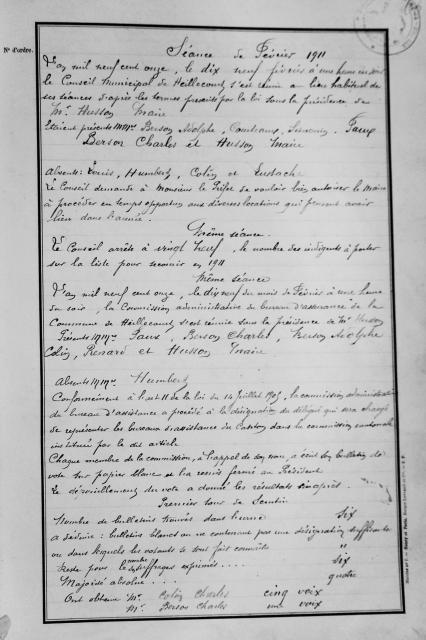 N° d'ordre.
Séance de Février 1911
L'an mil neuf cent onze, le dix neuf février à une heure du soir
le Conseil Municipal de Heillecourt, s'est réuni au lieu habituel de
ses séances d'après les termes prescrits par la loi sous la présidence de
Mr. Husson Maire
Etaient présents MMrs. Berson Adolphe, Faux
Berson Charles et Husson Maire
Absents: Louis, Humbert, Colin et Eustache
Le Conseil demande à Monsieur le Préfet de vouloir bien autoriser le Maire
à procéder en temps opportun aux diverses locations qui peuvent avoir
lieu dans l'année.
Même séance.
Le Conseil arrête à vingt neuf, le nombre des indigents à porter
sur la liste pour secourir en 1911
Même séance
L'an mil neuf cent onze, le dix neuf du mois de Février à une heure
du soir, la Commission administrative du bureau d'assurance de la
Commune de Heillecourt s'est réunie sous la présidence de Mr. Husson
Présents MMrs. Faux, Berson Charles, Berson Adolphe
Colin, Renard et Husson Maire
Absent MMrs. Humbert
Conformément à l'art 11 de la loi du 14 Juillet 1905, la commission administrative
du bureau d'assistance a procédé à la désignation du délégué qui sera chargé
de représenter les bureaux d'assistance du Canton dans la commission cantonale
instituée par le dit article
Chaque membre de la commission, à l'appel de son nom, a écrit son bulletin de
vote sur papier blanc et l'a remis fermé au Président
Le dépouillement du vote a donné les résultats ci-après.
Premier tour de Scrutin
Nombre de bulletins trouvés dans l'urne six
A déduire: bulletins blancs ou ne contenant pas une désignation suffisante
ou dans lesquels les votants se sont fait connaître "
Reste pour le nombre des suffrages exprimés.... six
Majorité absolue.... quatre
Ont obtenu Mr. Colin Charles cinq voix
Mr. Berson Charles une voix